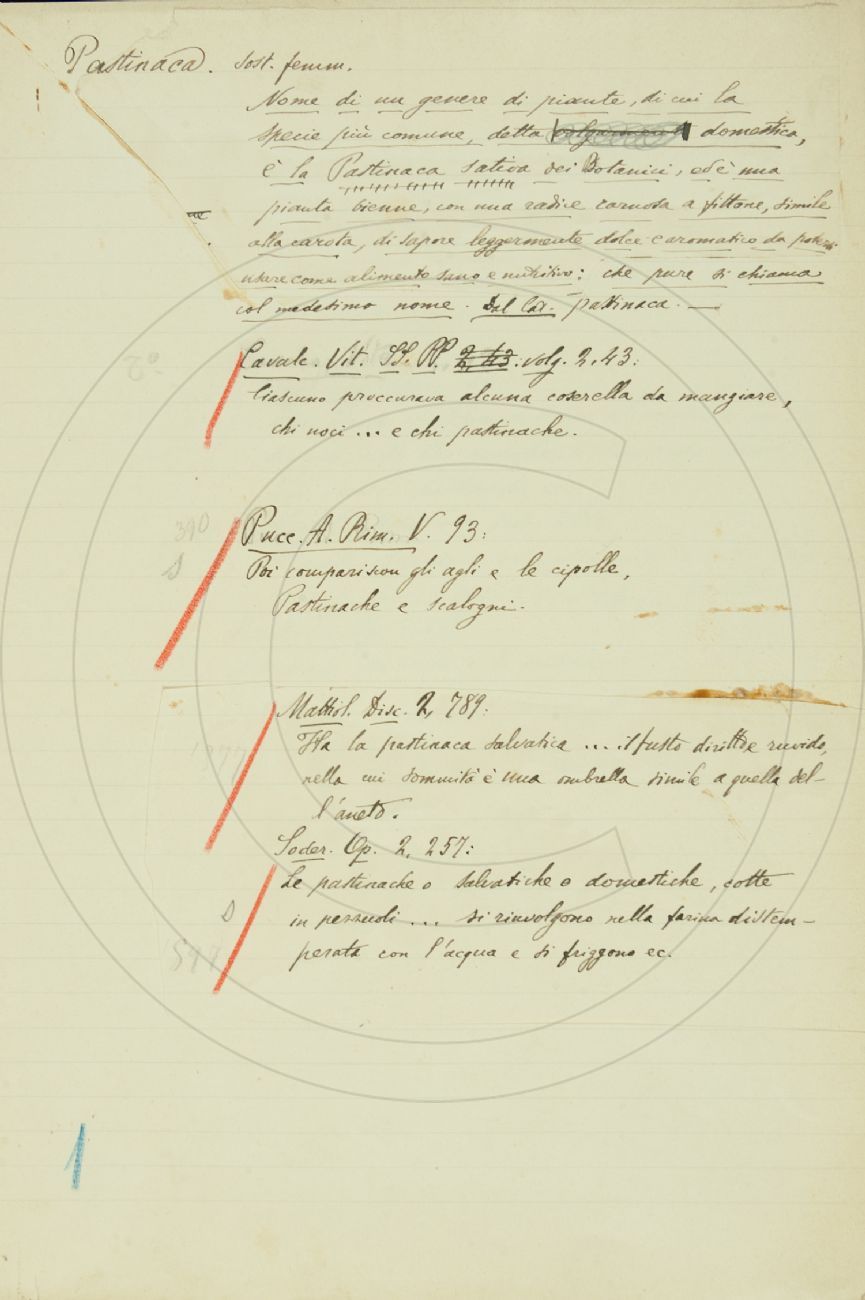 Pastinaca. Sost. femm.
Nome di un genere di piante, di cui la
specie più comune, detta domestica,
è la Pastinaca sativa dei Botanici, ed è una
pianta bienne, con una radice carnosa a fittone, simile
alla carota, di sapore leggermente dolce e aromatico da potersi
usare come alimento sano e nutritivo; che pure si chiama
col medesimo nome. Dal lat. pastinaca. —
Cavalc. Vit. SS. PP. 2, 43. volg. 2, 43:
Ciascuno proccurava alcuna coserella da mangiare,
chi noci ... e chi pastinache.
390
Pucc. A. Rim. V. 93:
Poi compariscon gli agli e le cipolle,
Pastinache e scalogni.
Mattiol. Disc. 2, 789:
Ha la pastinaca salvatica ... il fusto diritto e ruvido,
nella cui sommità è una ombrella simile a quella del-
l'aneto.
Soder. Op. 2, 257:
Le pastinache o salvatiche o domestiche, cotte
in pezzuoli ... si rinvolgono nella farina distem-
perata con l'acqua e si friggono ec.
1